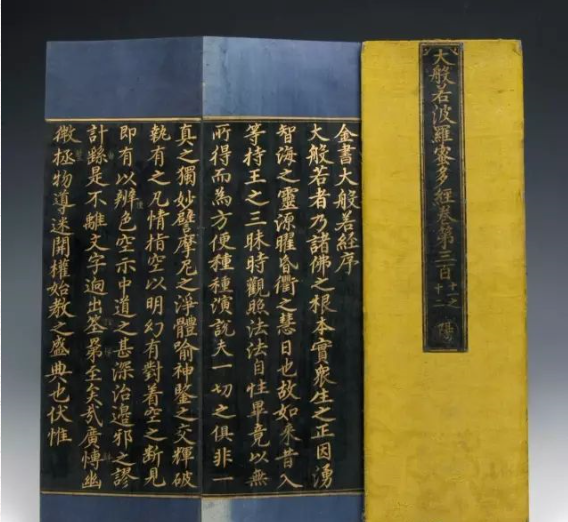 大般若波羅蜜多經卷第三百
十一之
十二
金書大般若經序
大般若者乃諸佛之根本實衆生之正因湧
智海之靈源曜昏衢之慧日也故如來昔入
等持王之三昧時觀照法法自性畢竟以無
所得而為方便種種演說夫一切之俱非一
真之獨妙譬摩尼之淨體喻神鑒之交輝破
執有之凡情指空以明幻有對着空之断見
即有以辨色空示中道之甚深治邊邪之謬
計繇是不離文字逈出筌至矣哉廣愽幽
微極物導迷開權始教之盛典也伏惟